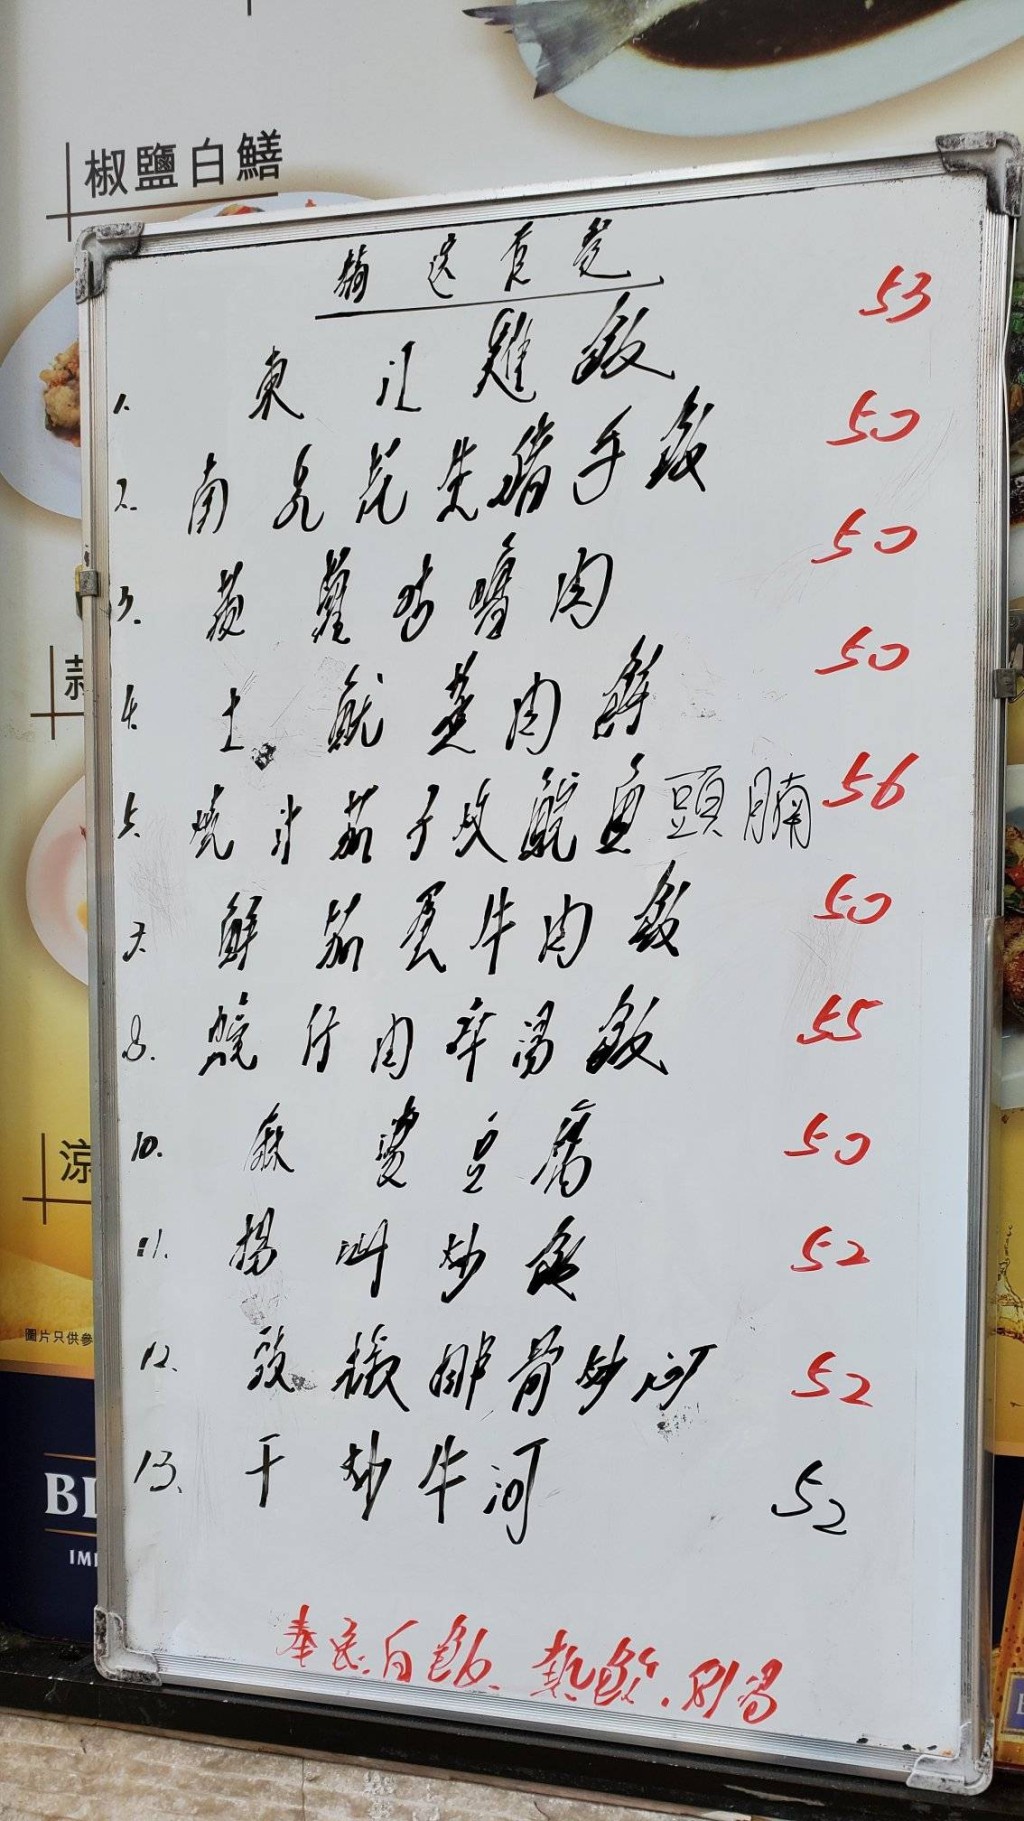 椒鹽白鱔
精选食笔
1. 東江雞飯 53
2. 南乳花生豬手飯 50
3. 肉 50
4. 土魷蒸肉餅 50
5. 燒汁茄子炆鯇魚頭腩 56
7. 鮮茄蛋牛肉飯 50
8. 片肉 湯飯 55
10. 麻婆豆腐 50
11. 揚州炒飯 52
12. 豉椒排骨炒河 52
13. 干炒牛河 52
奉送.白飯.熱飲.例湯
涼
圖片只供參
BL
IMP